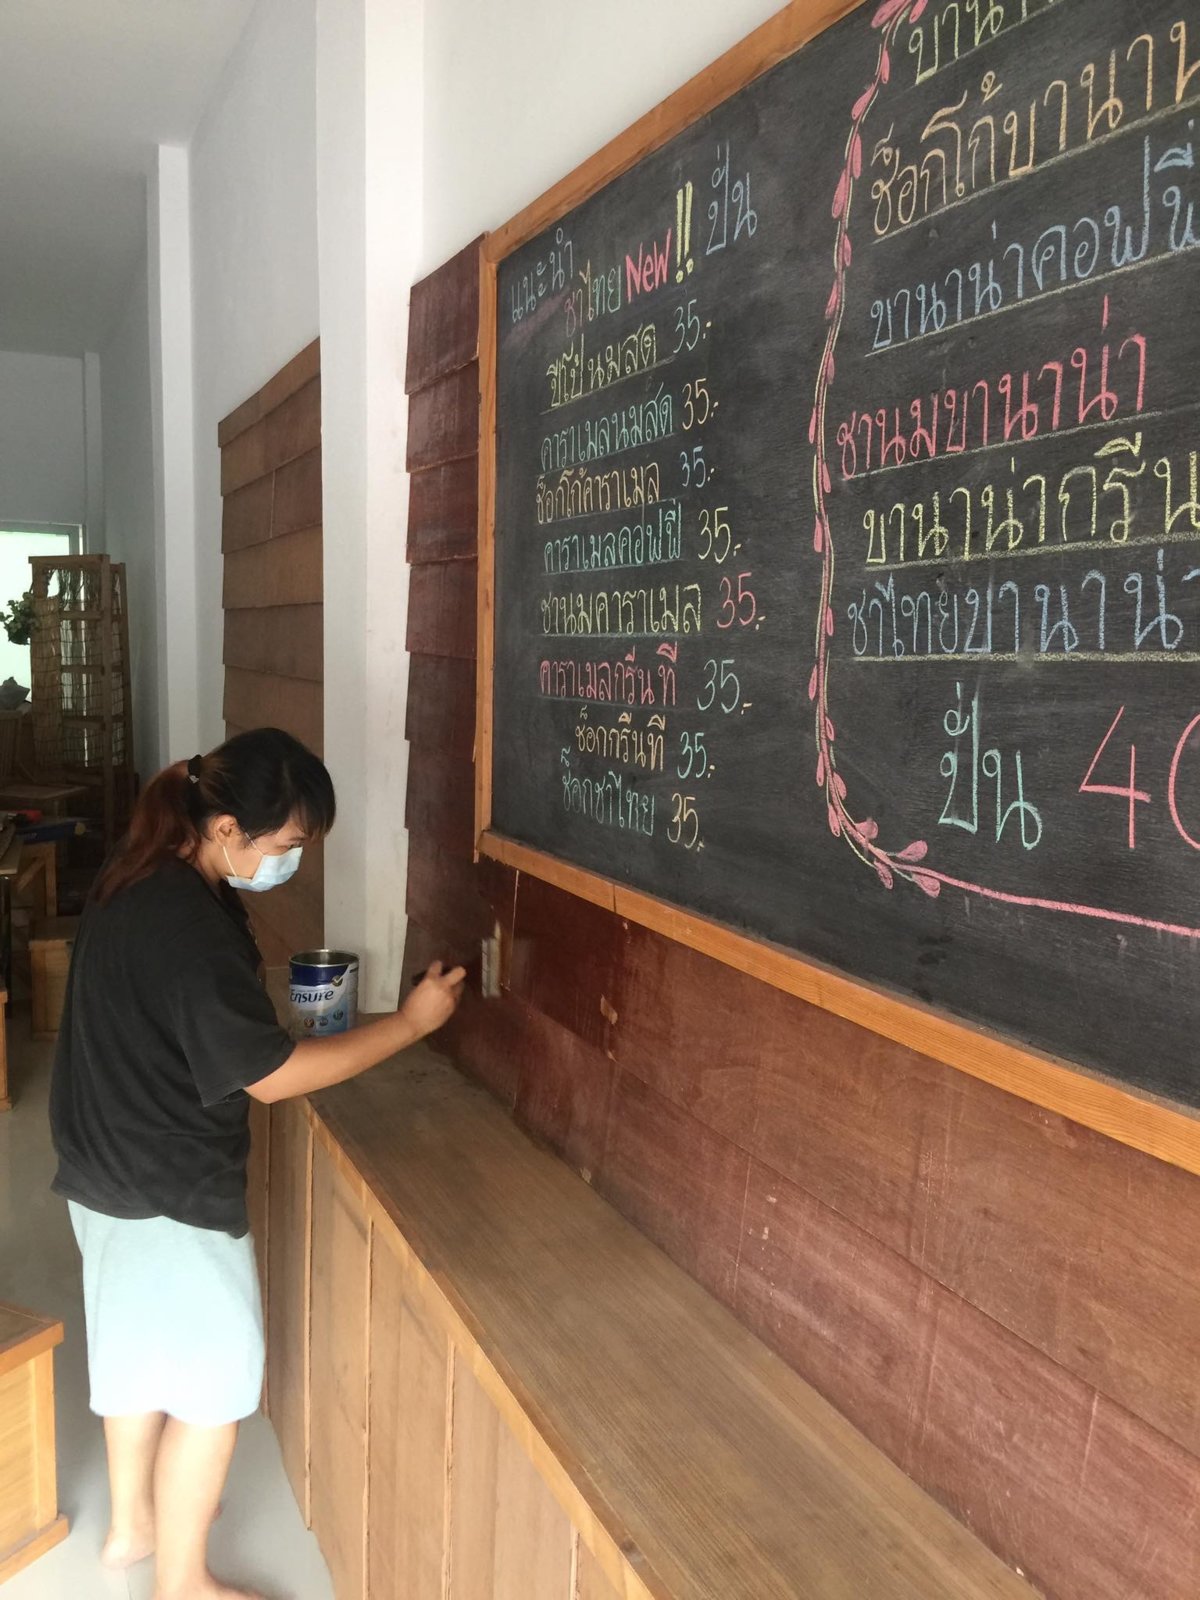 แนะนำ
ชาไทย New!! ปั่น
ปีโป้นมสด 35.-
คาราเมลนมสด 35.-
ช็อกโก้คาราเมล 35.-
คาราเมลคอฟฟี่ 35.-
ชานมคาราเมล 35.-
คาราเมลกรีนที 35.-
ช็อกกรีนที 35.-
ช็อกชาไทย 35.-
ช็อกโก้บานาน
บานาน่าคอฟฟี่
ชานมบานาน่า
บานาน่ากรีน
ชาไทยบานาน่า
ปั่น 40
Ensure